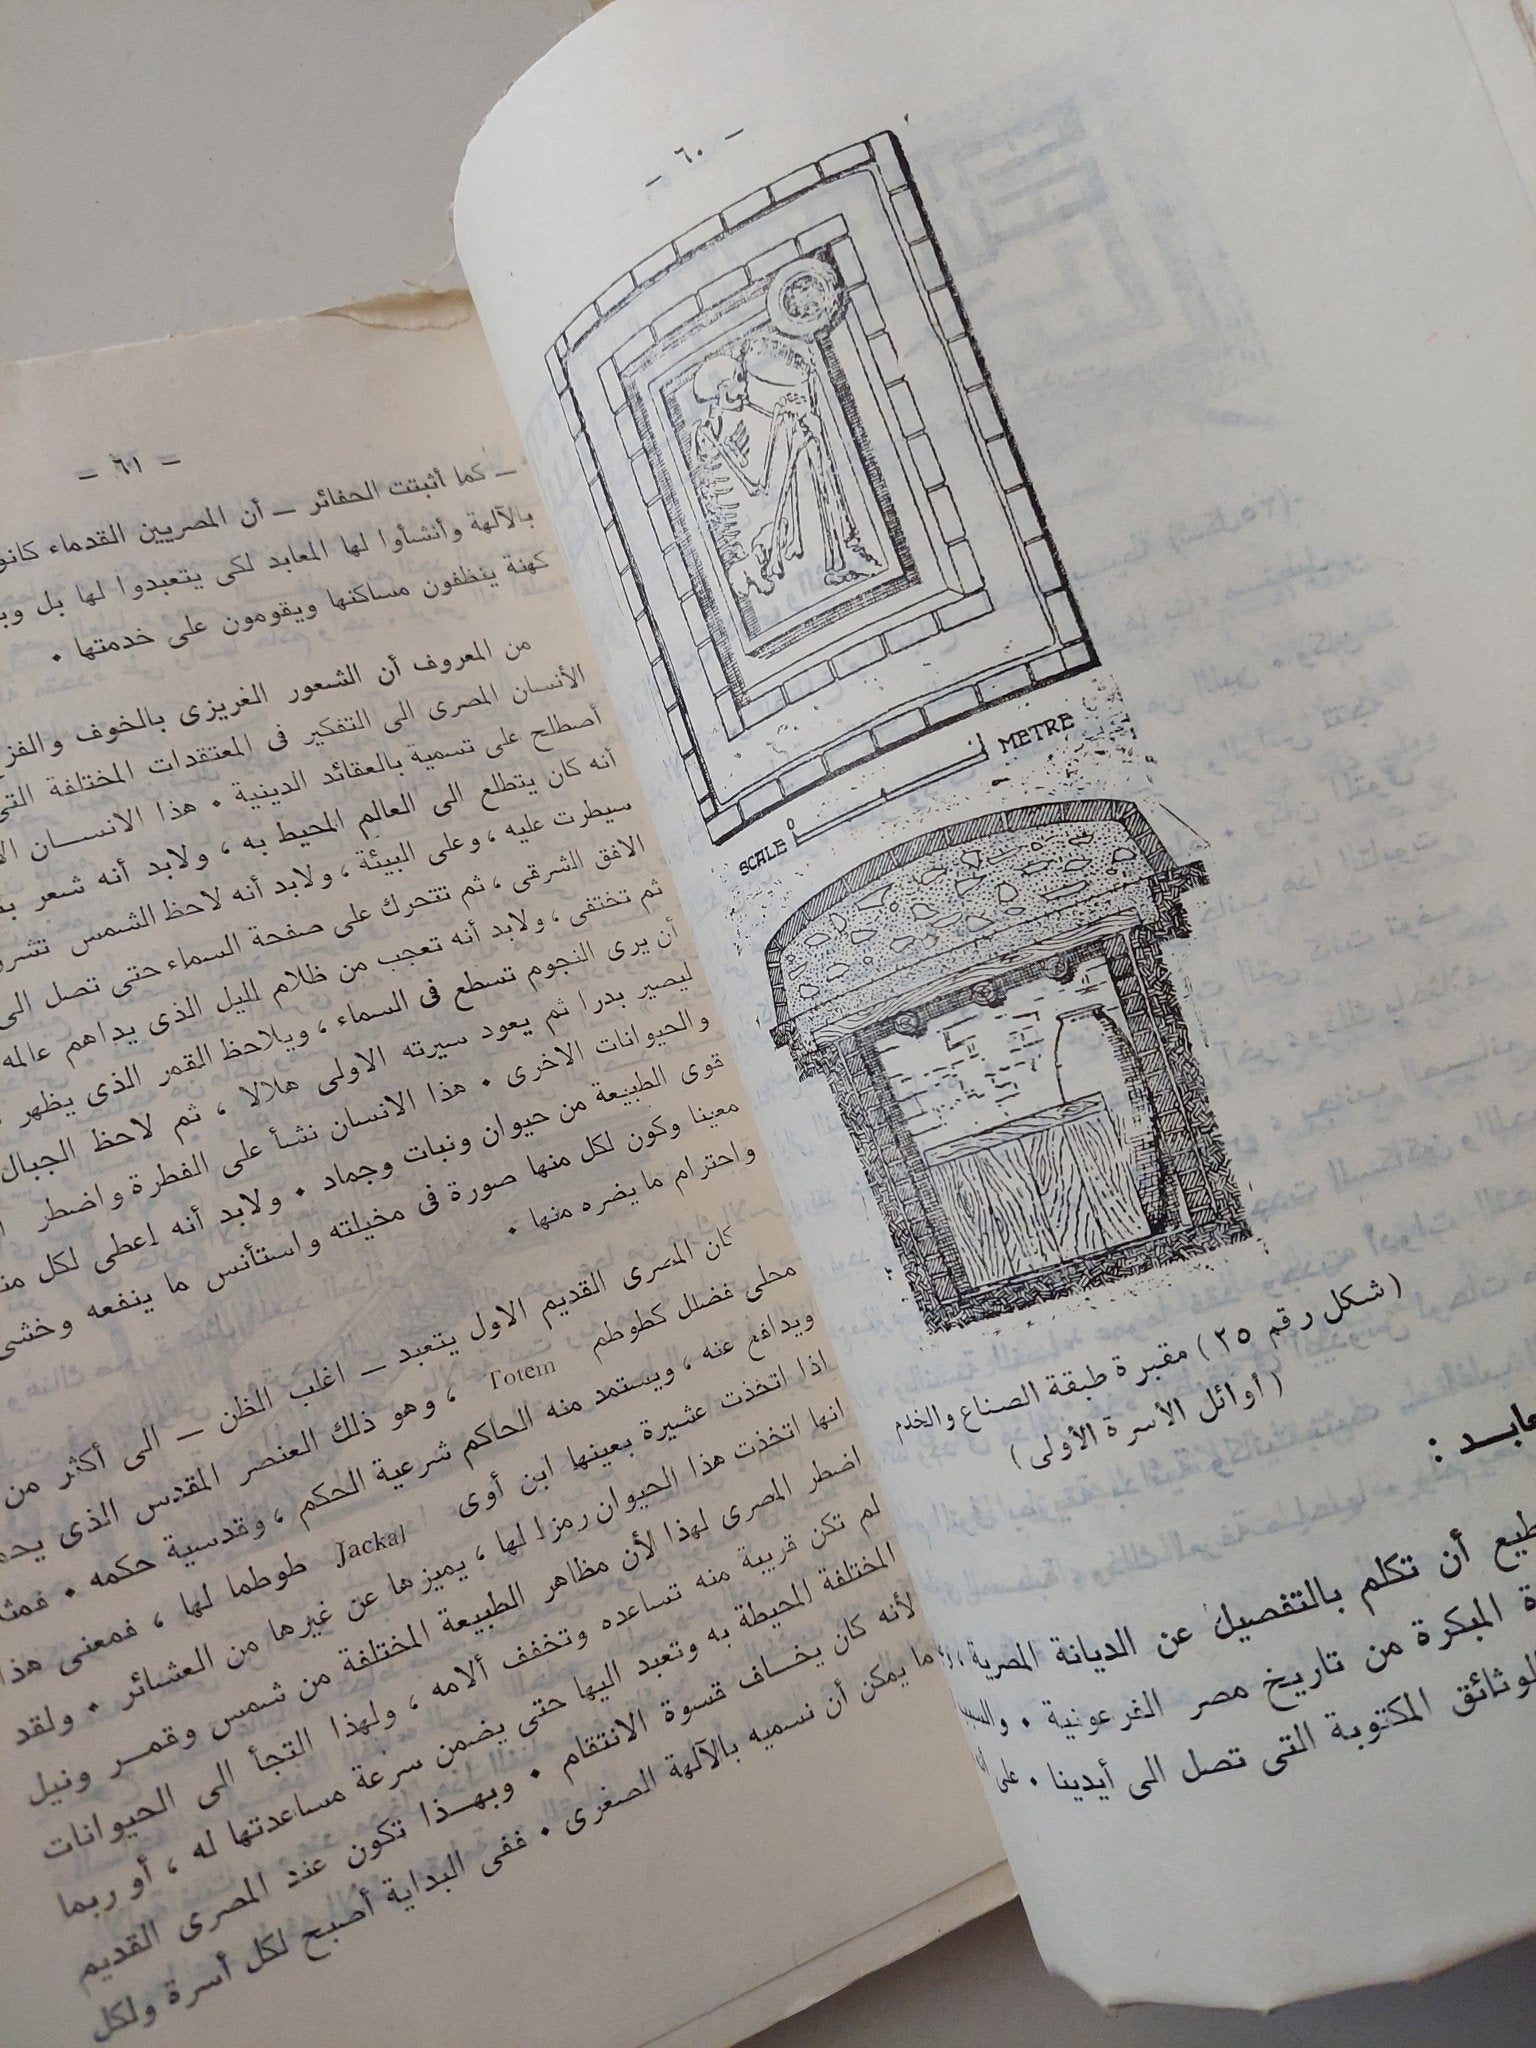 - ٦٠ -
SCALE 0 1 METRE
( شكل رقم ٣٥ ) مقبرة طبقة الصناع والخدم
( أوائل الأسرة الأولى )
أن تكلم بالتفصيل عن الديانة المصرية ،
المبكرة من تاريخ مصر الفرعونية .
المكتوبة التى تصل الى أيدينا . على
- ٦١ -
— كما أثبتت الحفائر — أن المصريين القدماء
بالآلهة وأنشأوا لها المعابد لكى يتعبدوا لها بل
كهنة ينظفون مساكنها ويقومون على خدمتها .
من المعروف أن الشعور الغريزى بالخوف
الأنسان المصرى الى التفكير فى المعتقدات المختلفة
أصطلح على تسمية بالعقائد الدينية . هذا الانسان
أنه كان يتطلع الى العالم المحيط به ، ولابد أنه شعر
سيطرت عليه ، وعلى البيئة ، ولابد أنه لاحظ الشمس
الافق الشرقى ، ثم تتحرك على صفحة السماء حتى تصل
ثم تختفى ، ولابد أنه تعجب من ظلام الليل الذى يداهم عالمه
أن يرى النجوم تسطع فى السماء ، ويلاحظ القمر الذى يظهر
ليصير بدرا ثم يعود سيرته الاولى هلالا ، ثم لاحظ الجبال
والحيوانات الاخرى . هذا الانسان نشأ على الفطرة واضطر
قوى الطبيعة من حيوان ونبات وجماد . ولابد أنه اعطى لكل
معينا وكون لكل منها صورة فى مخيلته واستأنس ما ينفعه
واحترام ما يضره منها .
كان المصرى القديم الاول يتعبد — اغلب الظن — الى أكثر من
محلى فضلل كطوطم Totem ، وهو ذلك العنصر المقدس الذى
ويدافع عنه ، ويستمد منه الحاكم شرعية الحكم ، وقدسية حكمه .
اذا اتخذت عشيرة بعينها ابن أوى Jackal طوطما لها ، فمعنى هذا
انها اتخذت هذا الحيوان رمزا لها ، يميزها عن غيرها من العشائر . ولقد
اضطر المصرى لهذا لأن مظاهر الطبيعة المختلفة من شمس وقمر ونيل
لم تكن قريبة منه تساعده وتخفف ألامه ، ولهذا التجأ الى الحيوانات
المختلفة المحيطة به وتعبد اليها حتى يضمن سرعة مساعدتها له ، أو ربما
لأنه كان يخاف قسوة الانتقام . وبهذا تكون عند المصرى القديم
ما يمكن أن نسميه بالآلهة الصغرى . ففى البداية أصبح لكل أسرة ولكل